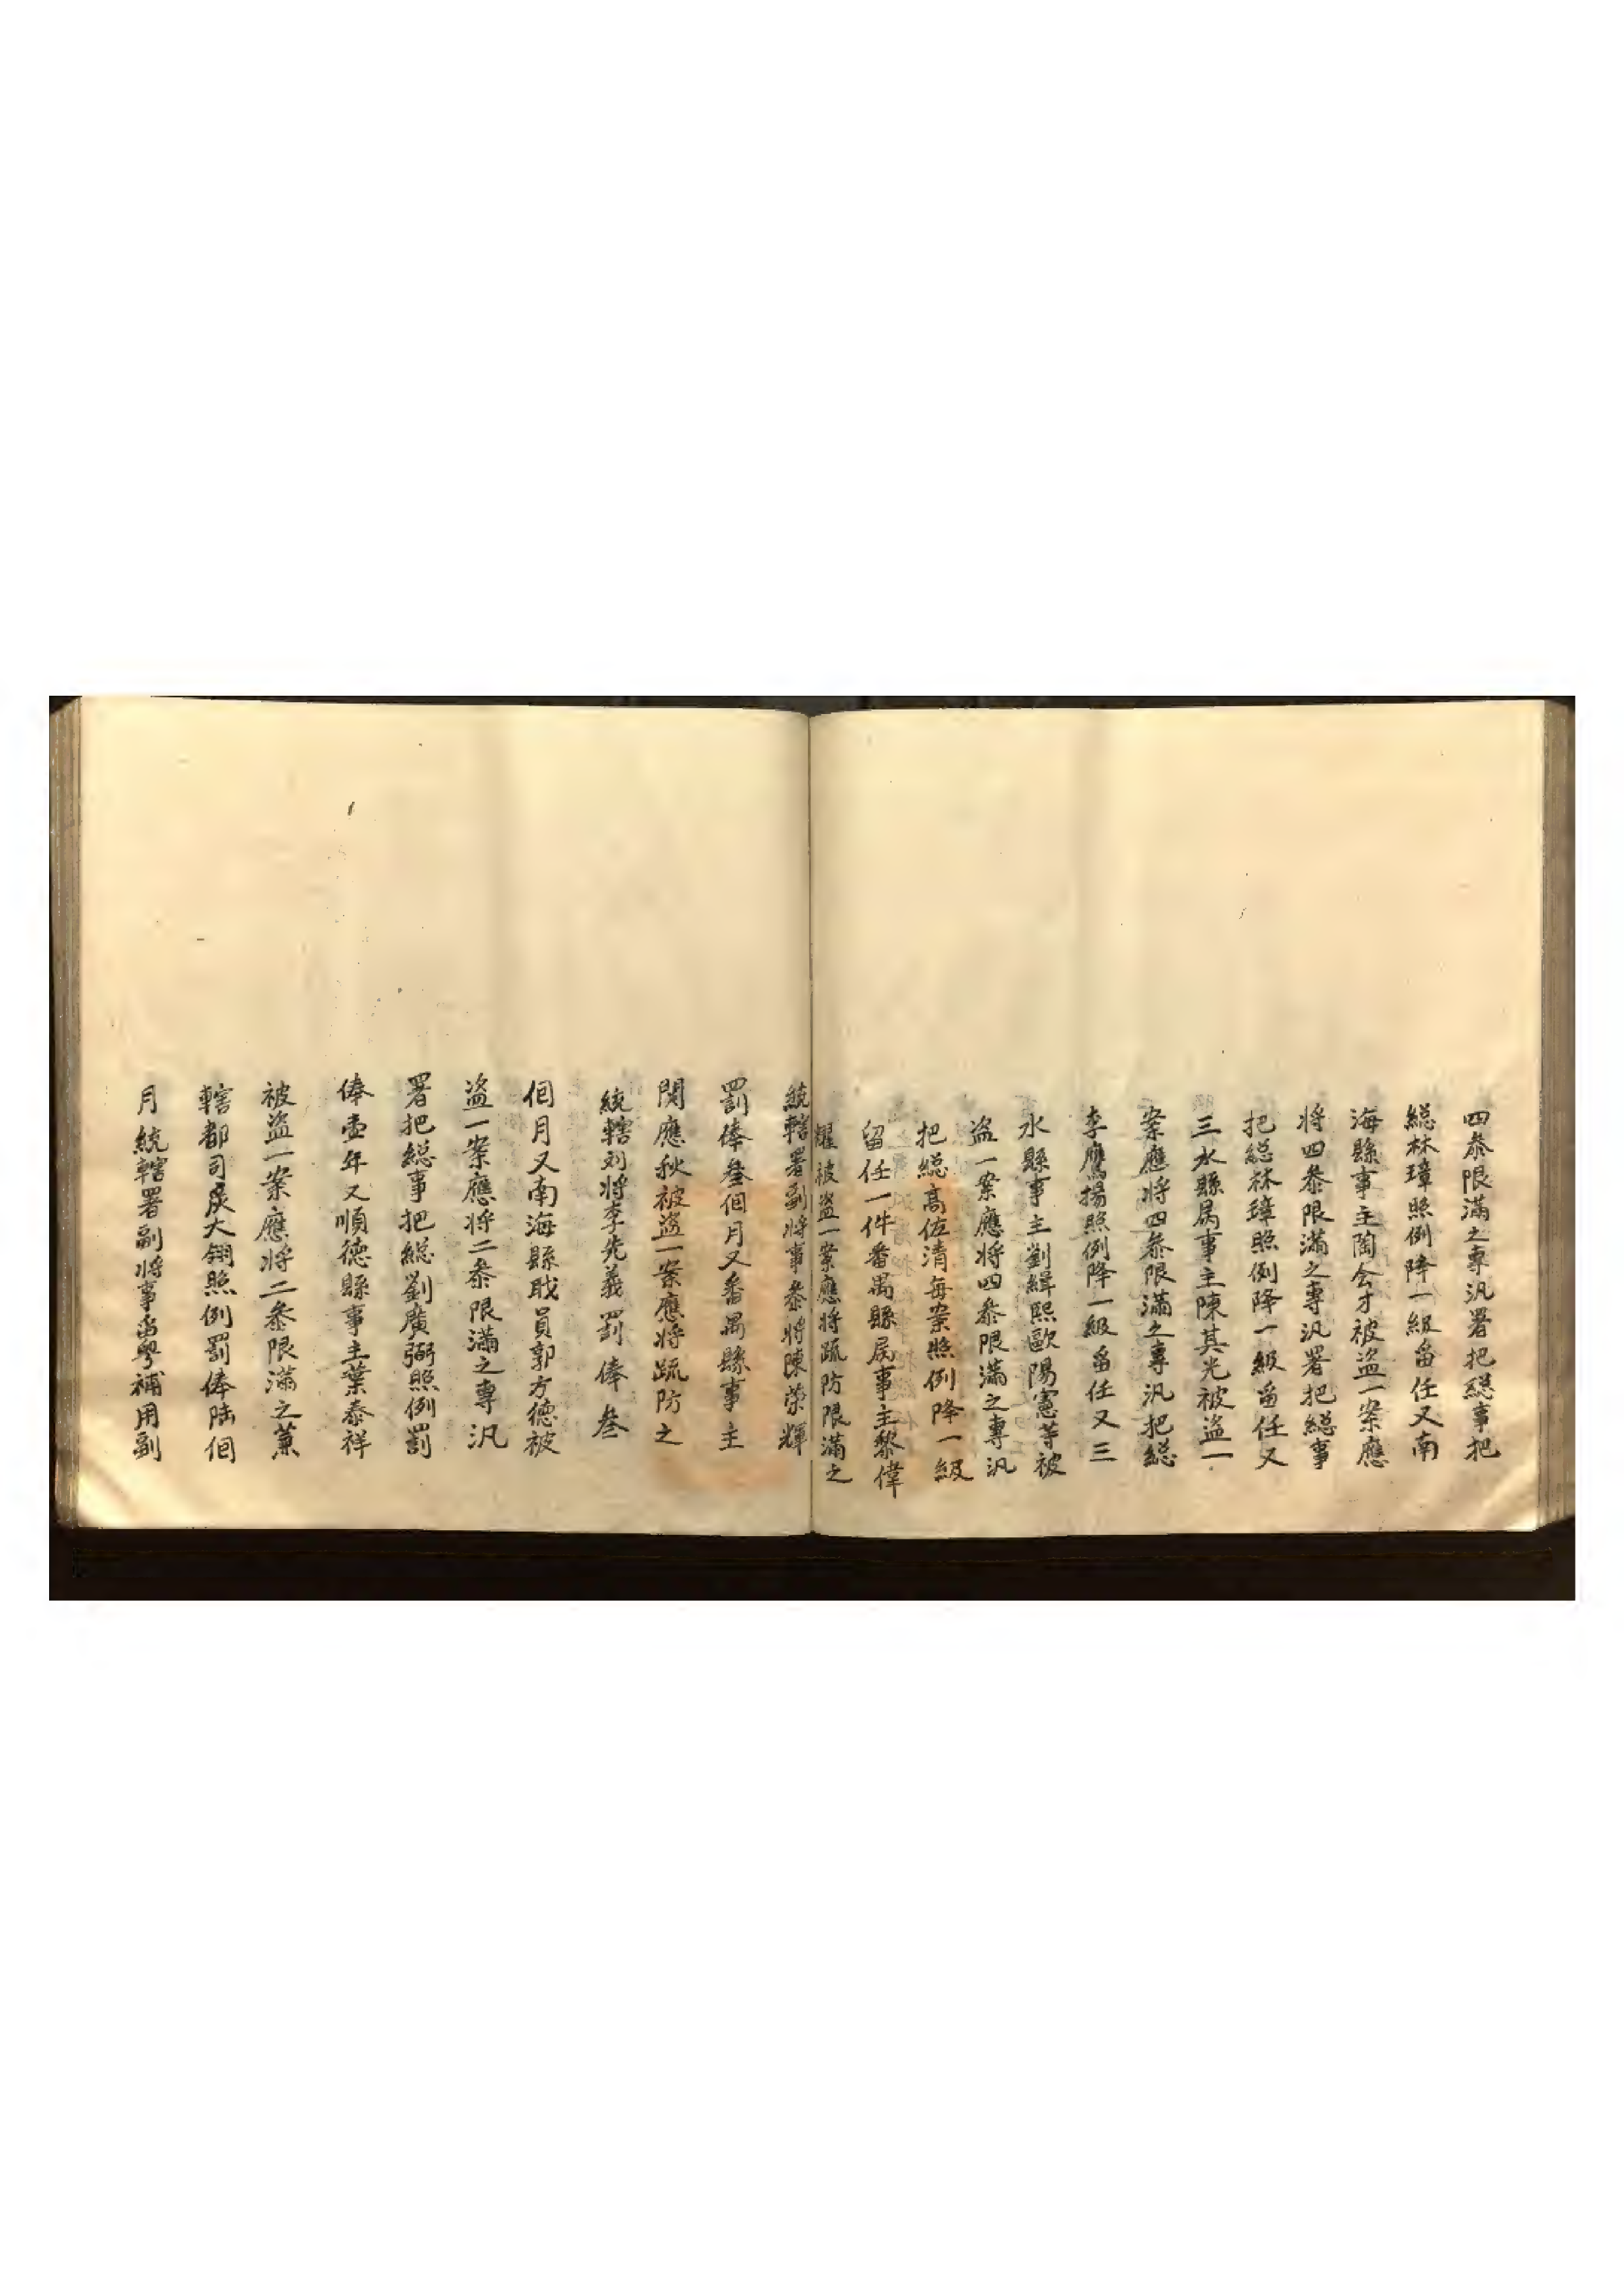 四叅限滿之專汛署把総事把
総林璋照例降一級畄任又南
海縣事主陶会才被盗一案應
将四叅限滿之專汛署把総事
把総林璋照例降一級畄任又
三水縣属事主陳其光被盗一
案應將四叅限滿之專汛把総
李鷹揚照例降一級畄任又三
水縣事主劉緝熙歐陽憲等被
盗一案應将四叅限滿之專汛
把総高佐清每案照例降一級
留任一件番禺縣属事主黎偉
耀被盗一案應將疏防限滿之
統轄署副将事叅将陳荣輝
罰俸叁個月又番禺縣事主
関應秋被盗一案應将疏防之
統轄刘将李先義罰俸叁
個月又南海縣戝員郭方德被
盗一案應将二叅限滿之專汛
署把総事把総劉廣弼照例罰
俸壹年又順德縣事主葉泰祥
被盗一案應将二叅限滿之兼
轄都司大翱照例罰俸陆個
月統轄署副将事畄粤補用副